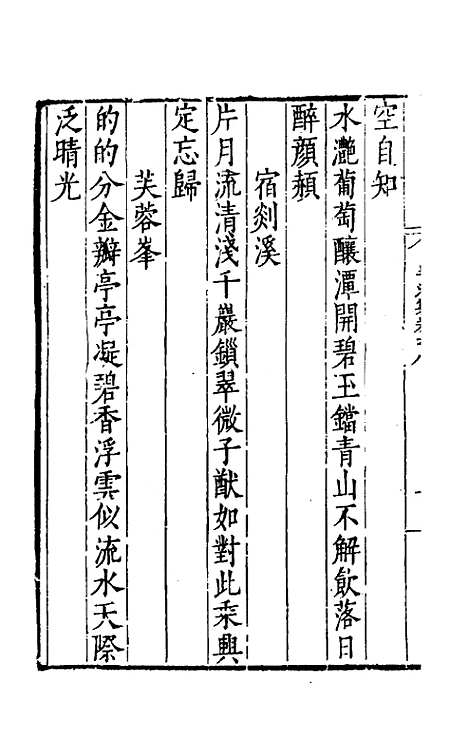 空自知
水灔葡萄釀潭開碧玉鐺青山不解飲落日
醉顔頳
宿剡溪
片月流清淺千巖鎖翠微子猷如對此乘興
定忘歸
芙蓉峯
的的分金瓣亭亭凝碧香浮雲似流水天際
泛晴光